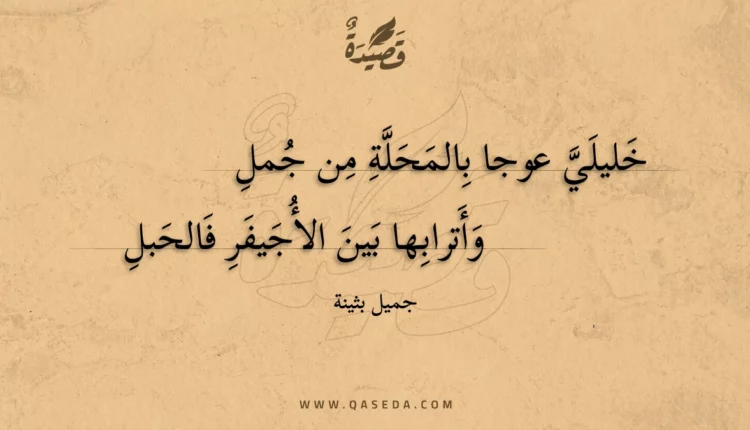 قَصِيْدَةٌ
خَليلَيَّ عوجا بِالمَحَلَّةِ مِن جُملِ
وَأَترابِها بَينَ الأُجَيفَرِ فَالحَبلِ
جميل بثينة
WWW.QASEDA.COM